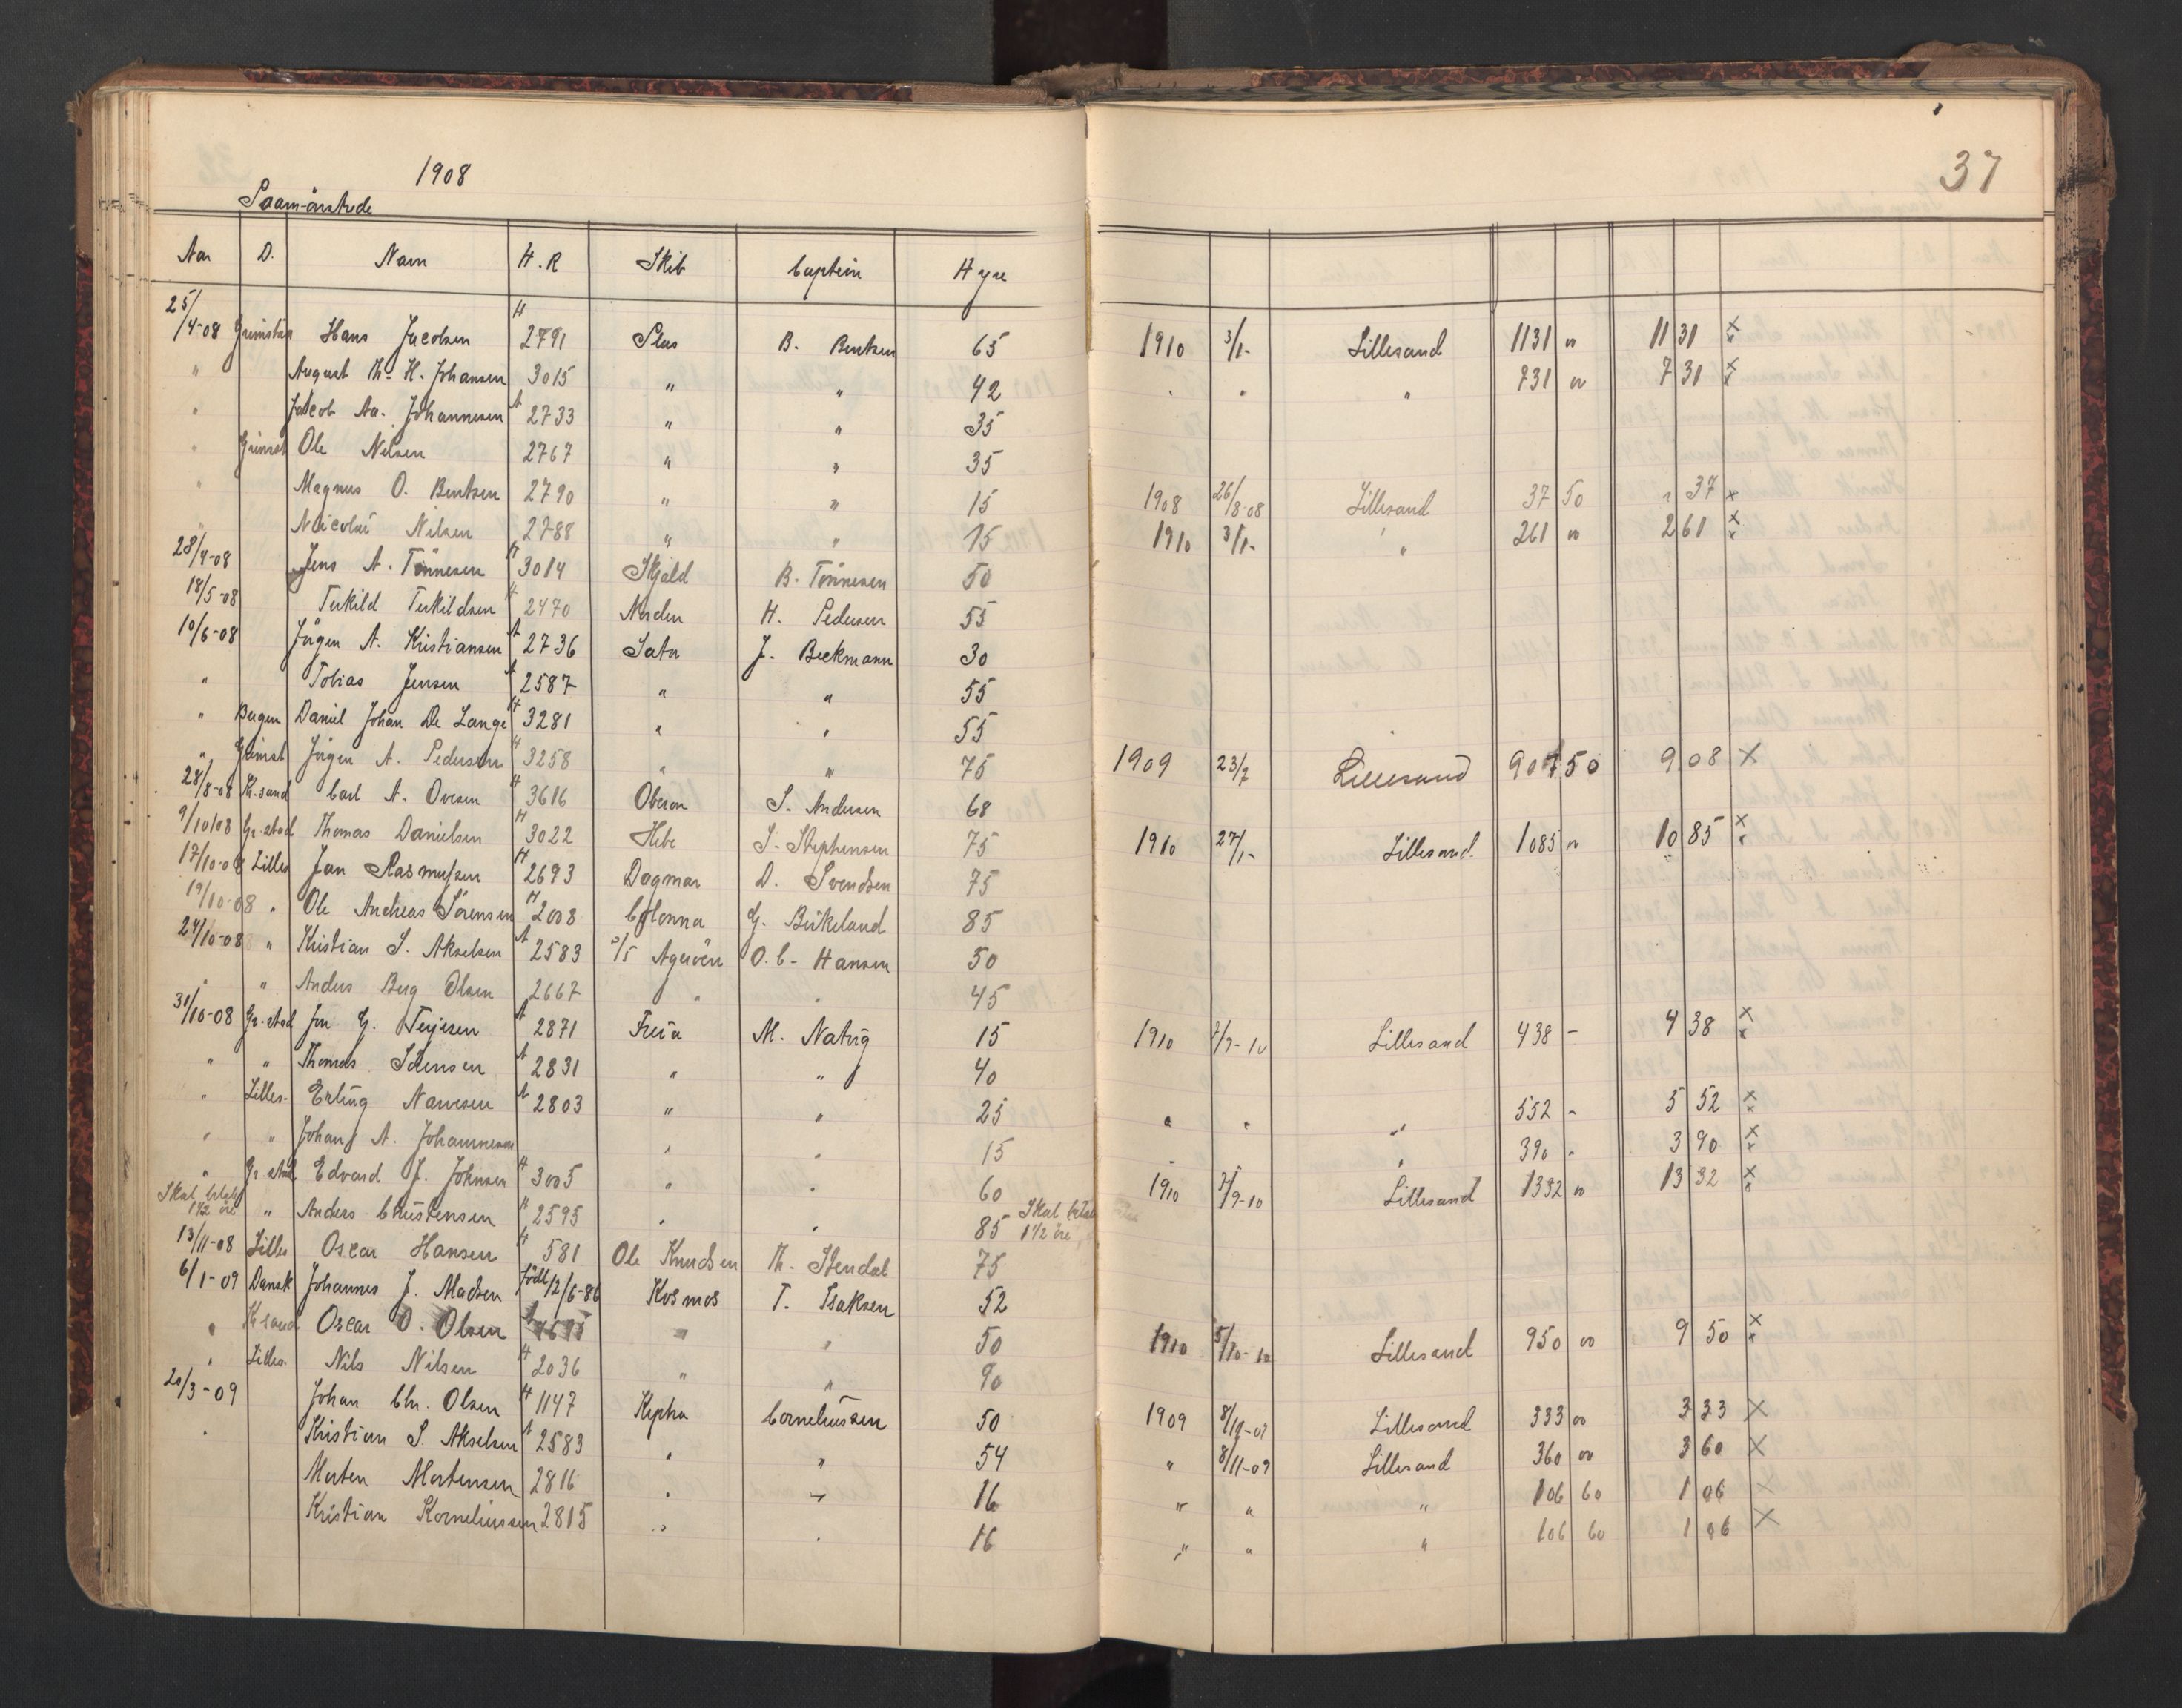 1908
37
Paamönstrede
Aar D. Navn H. R Skib Captein Hyre
25/4-08 Grimstad Hans Jacobsen H 2791 Plus B. Bentsen 65 1910 3/1- Lillesand 1131 00 11 31 x
" August Th. H. Johansen 3015 " " 42 " " " 731 00 7 31 x
" Jacob Aa. Johannesen A 2733 " " 35
" Grimst Ole Nilsen 2767 " " 35
" Magnus O. Bentsen 2790 " " 15 1908 26/8-08 Lillesand 37 50 " 37 x
" Nicolai Nilsen 2788 " " 15 1910 3/1- " 261 00 2 61 x
28/4-08 Jens A. Tönnesen H 3014 Skjald B. Tönnesen 50
18/5-08 Terkild Terkildsen H 2470 Norden H. Pedersen 55
10/6-08 Jörgen A. Kristiansen A 2736 Sato J. Beckmann 30
" Tobias Jensen A 2587 " " 55
" Bergen Daniel Johan De Lange H 3281 " " 55
" Grimst Jörgen A. Pedersen H 3258 " " 75 1909 23/7 Lillesand 907 50 9 08 X
28/8-08 Kr.sand Carl A. Ovesen H 3616 Oberon S. Andersen 68
9/10/08 Gr.stad Thomas Danielsen H 3022 Hebe S. Stephensen 75 1910 27/1- Lillesand 1085 00 10 85 x
17/10-08 Lilles Jan Rasmussen H 2693 Dagmar D. Svendsen 75
19/10-08 " Ole Andreas Sörensen H 2008 Colonna G. Birkeland 85
24/10-08 " Kristian S. Akselsen A 2583 S/S Ageröen O. C. Hansen 50
" " Anders Berg Olsen 2667 " " 45
31/10-08 Gr.stad Jn. G. Terjesen A 2871 Freia M. Natvig 15 1910 7/9-10 Lillesand 438 - 4 38 x
" " Thomas Sörensen A 2831 " " 40
" Lilles- Erling Narvesen A 2803 " " 25 " " " 552 - 5 52 x
" " Johan A. Johannesen " " 15 " " 390 - 3 90 x
" Gr.stad Edvard J. Johnsen H 3005 " " 60 1910 7/9-10 Lillesand 1332 00 13 32 x
Skal betale 1 1/2 öre " Anders Christensen H 2595 " " 85 Skal betale 1 1/2 öre
13/11-08 Lilles Oscar Hansen H 581 Ole Knudsen Th. Stendal 75
6/1-09 Dansk Johannes J. Madsen födt 12/6-86 Kosmos T. Isaksen 52
" Kr.sand Oscar O. Olsen " " 50 1910 5/10-10 Lillesand 950 00 9 50 x
" Lilles. Nils Nilsen H 2036 " " 90
20/3-09 Johan Chr. Olsen H 1147 Kepha Corneliussen 50 1909 8/11-09 Lillesand 333 00 3 33 X
" Kristian S. Akselsen A 2583 " " 54 " 8/11-09 Lillesand 360 00 3 60 X
Morten Mortensen 2816 " " 16 " " " 106 60 1 06 X
Kristian Korneliussen 2815 " " 16 " " " 106 60 1 06 X